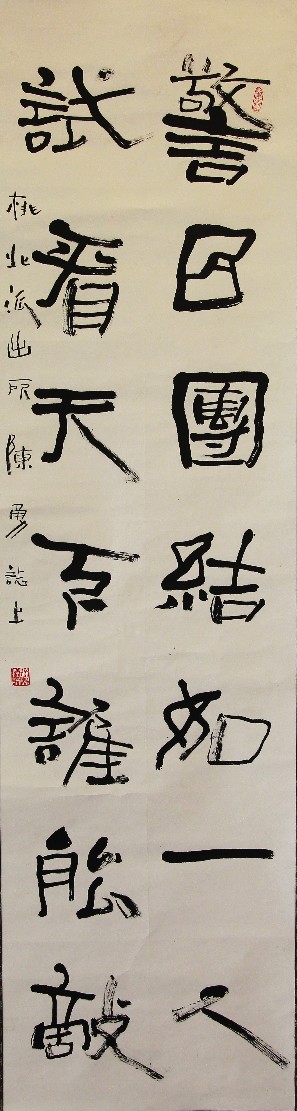 警民團結如一人
試看天下誰能敵
桃北派出所陳勇誌上